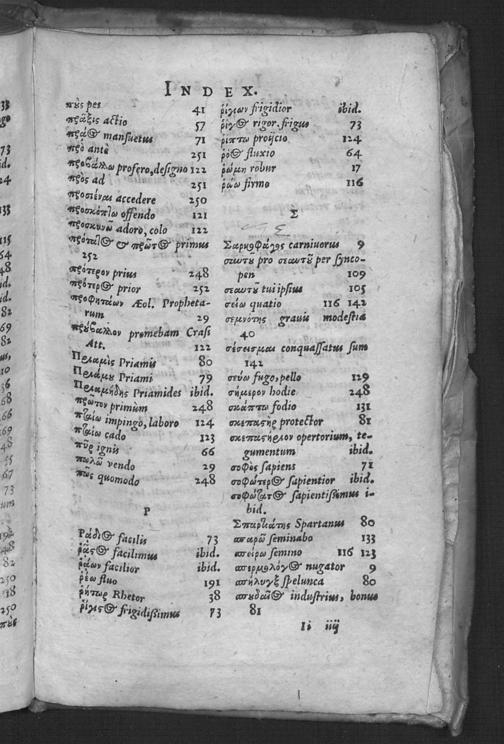 INDEX.
πȣ̀ς pes 41
πρᾶξις actio 57
πρᾶϘ mansuetus 71
πρὸ antè 251
προβάλλω profero, designo 122
πρὸς ad 251
προσιέναι accedere 250
προσκόπτω offendo 121
προσκυνῶ adoro, colo 122
πρόταϘ & πρῶτϘ primus
252
πρότερον prius 248
πρότερϘ prior 252
προφητάων Æol. Propheta-
rum 29
πρȣ̓́βαλλον promebam Crasi
Att. 122
Πριαμὶς Priamis 80
Πριάμȣ Priami 79
Πριαμήδης Priamides ibid.
πρῶτον primùm 248
πταίω impingo, laboro 124
πταίω cado 123
πῦρ ignis 66
πωλῶ vendo 29
πῶς quomodo 248
P
ῬάδιϘ facilis 73
ῥᾷςϘ facilimus ibid.
ῥᾴων facilior ibid.
ῥέω fluo 191
ῥήτωρ Rhetor 38
ῥίγιςϘ frigidißimus 73
ῥίγιων frigidior ibid.
ῥῖγϘ rigor, frigus 73
ῥίπτω proijcio 124
ῥόϘ fluxio 64
ῥώμη robur 17
ῥώω firmo 116
Σ
Σαρκοφάγος carnivorus 9
σαυτȣ pro σεαυτȣ͂ per synco-
pen 109
σεαυτȣ͂ tui ipsius 105
σείω quatio 116 142
σεμνότης gravis modestia
40
σέσεισμαι conquassatus sum
142
σεύω fugo, pello 129
σήμερον hodie 248
σκάπτω fodio 131
σκεπαςὴρ protector 81
σκεπαςήριον opertorium, te-
gumentum ibid.
σοφὸς sapiens 71
σοφώτερϘ sapientior ibid.
σοφώτατϘ sapientißimus i-
bid.
Σπαρτιάτης Spartanus 80
σπαρῶ seminabo 133
σπείρω semino 116 123
σπερμολόγϘ nugator 9
σπήλυγξ spelunca 80
σπȣδαῖϘ industrius, bonus
81
Ii iiij